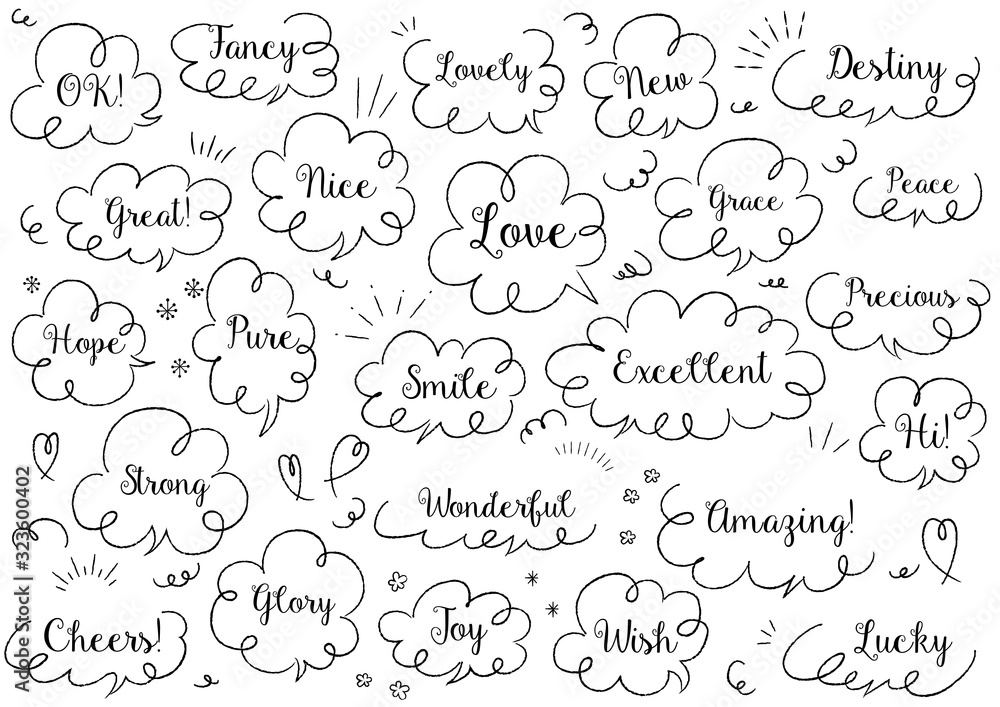 OK!
Fancy
Lovely
New
Destiny
Great!
Nice
Love
Grace
Peace
Hope
Pure
Smile
Excellent
Precious
Hi!
Strong
Wonderful
Amazing!
Cheers!
Glory
Joy
Wish
Lucky
Adobe Stock | #323600402